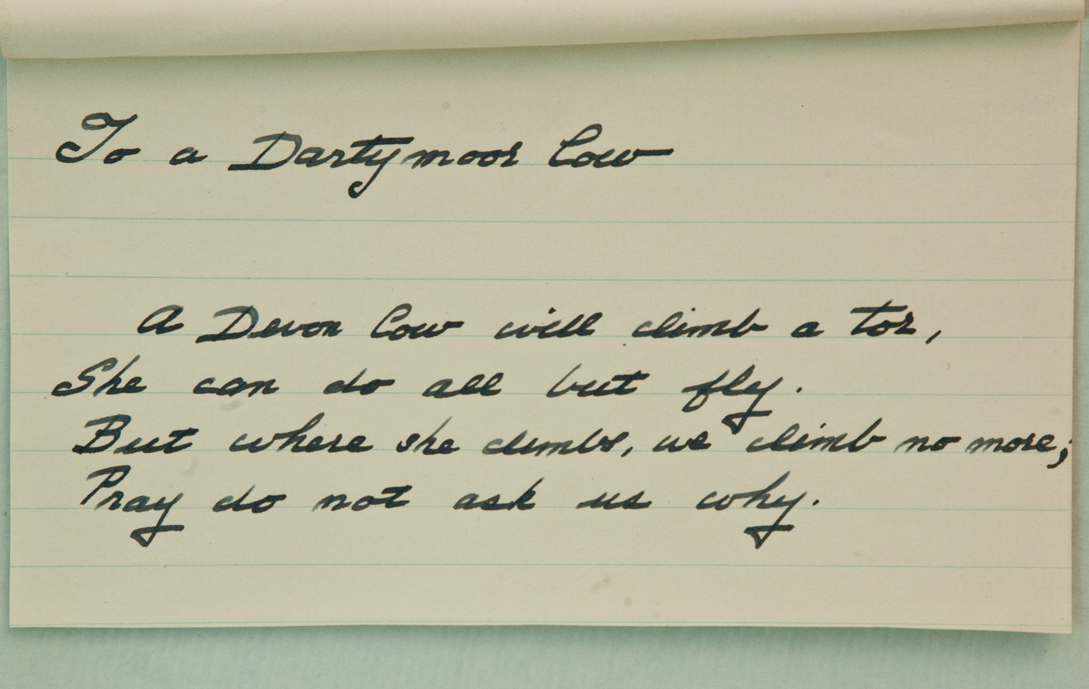 To a Dartymoor Cow
A Devon Cow will climb a tor,
She can do all but fly.
But where she climbs, we climb no more;
Pray do not ask us why.